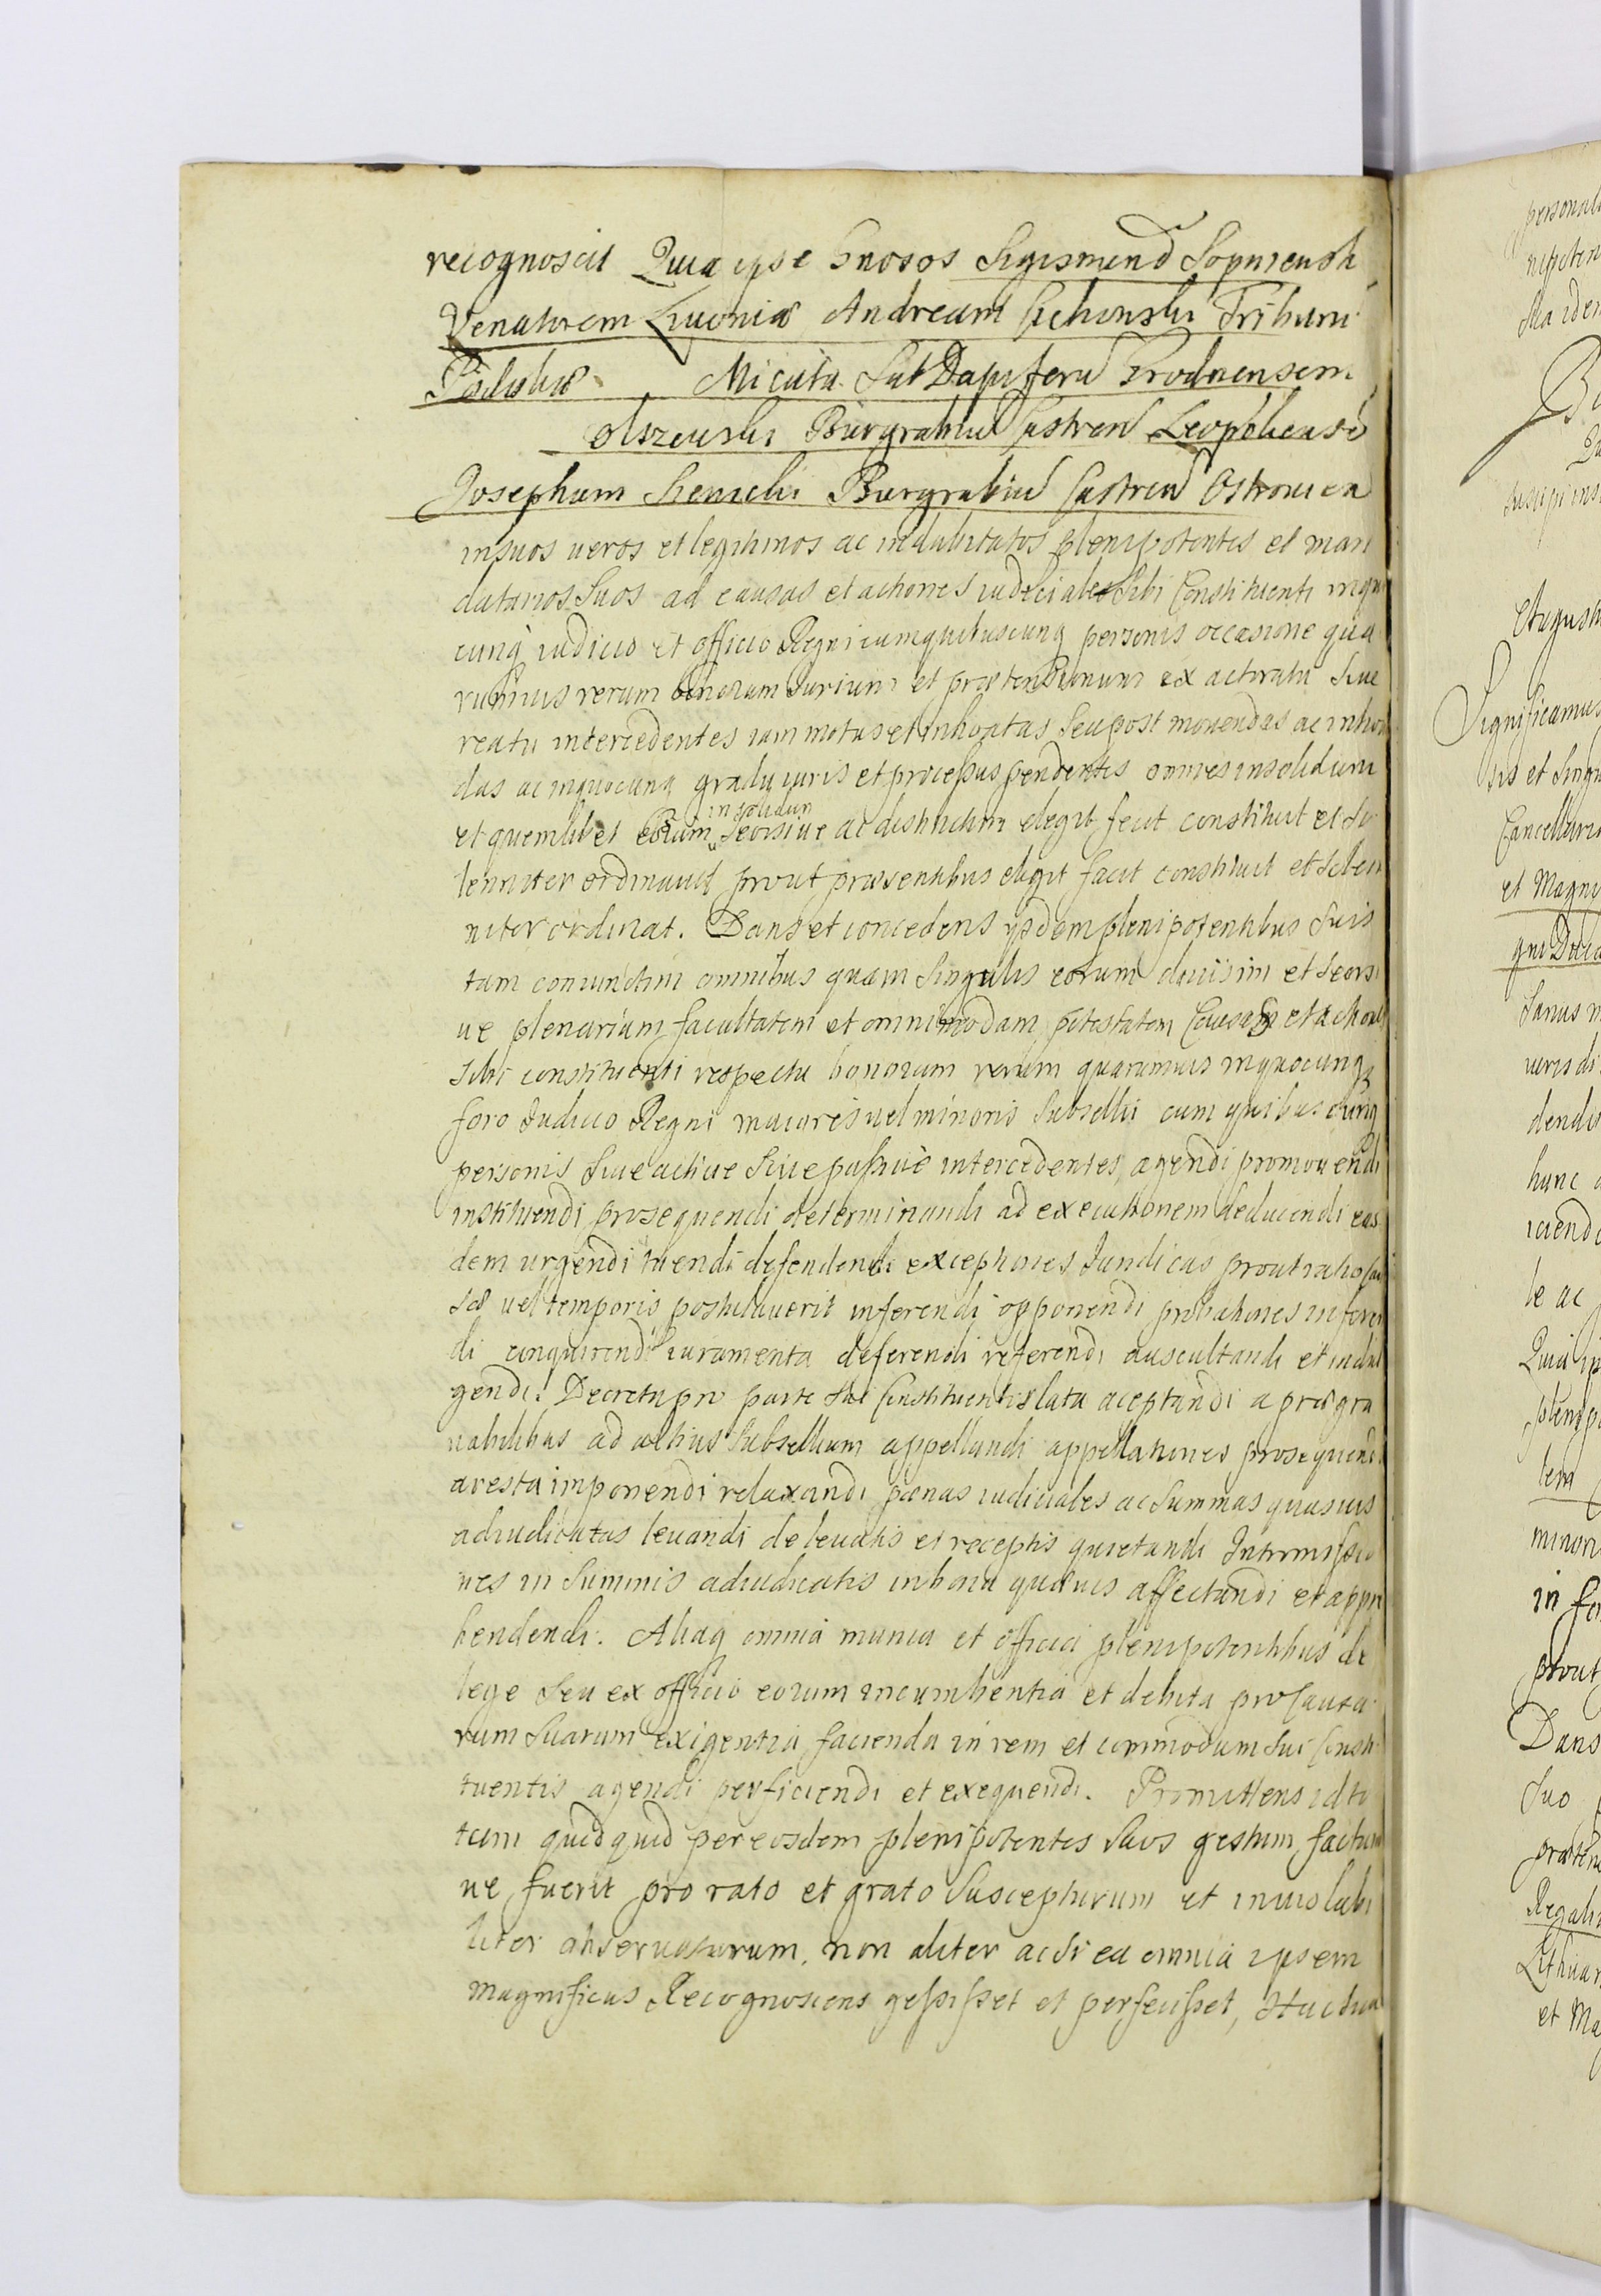 recognoscit Quia ipse Gnosos Sigismund
Venatorem Livoniæ Andream Cichonski Tribuni
Podoliæ Micuta SubDapiferu Grodnensem
Olszewski Burgrabiu Castren Leopoliensē
Josephum Burgrabiu Castren Ostrouien
in suos ueros et legitimos ac indubitatos plenipotentes et man
datarios Suos ad causas et actiones iudiciales Sibi Constituenti inqu
cunq iudicio et officio Regni cum quibuscunq personis occasione qua
rumuis rerum bonorum Jurium et prætensionum ex actoratu Siue
reatu intercedentes iam motas et inhoatas Seu post mouendas ac inhoa
das ac in quocunq gradu iuris et processus pendentes omnes in solidum
in solidum
et quemlibet eorum Seorsiue ac distinctim elegit fecit constituit et So
lenniter ordinauit prout præsentibus elegit facit constituit et Solen
niter ordinat. Dans et concedens ysdem plenipotentibus Suis
tam coniunctim omnibus quam Singulis eorum diuisim et Seorsi
ue plenariam facultatem et omnimodam potestatem Causas et actiones
Sibi constituenti respectu bonorum rerum quarumuis in quocunq
foro Judicio Regni maioris uel minoris Subsellii cum quibuscunq
personis Siue actiue Siue passiue intercedentes, agendi promouendi
instituendi prosequendi determinandi ad executionem deducendi eas
dem urgendi tuendi defendendi exceptiones Juridicas prout ratio Cau
sæ uel temporis postulauerit inferendi opponendi probationes inferen
di conquirendi iuramenta deferendi referendi auscultandi et indul
gendi. Decreta pro parte Sui Constituentis lata aceptandi a prægra
uabilibus ad altius Subsellium appellandi appellationes prosequendi
aresta imponendi relaxandi pœnas iudiciales ac Summas quasuis
adiudicatas leuandi de leuatis et receptis quietandi Intromissio
nes in Summis adiudicatis in bona quæuis affectandi et appre
hendendi. Aliaq omnia munia et officia plenipotentibus de
lege Seu ex officio eorum incumbentia et debita pro Causa
rum Suarum exigentia facienda in rem et commodum Sui Consti
tuentis agendi perficiendi et exequendi. Promittens id to
tum quidquid per eosdem plenipotentes Suos gestum factum
ue fuerit pro rato et grato Suscepturum et inuiolabi
liter obseruaturum, non aliter acsi ea omnia ipsem
Magnificus Recognoscens gessisset et perfecisset,